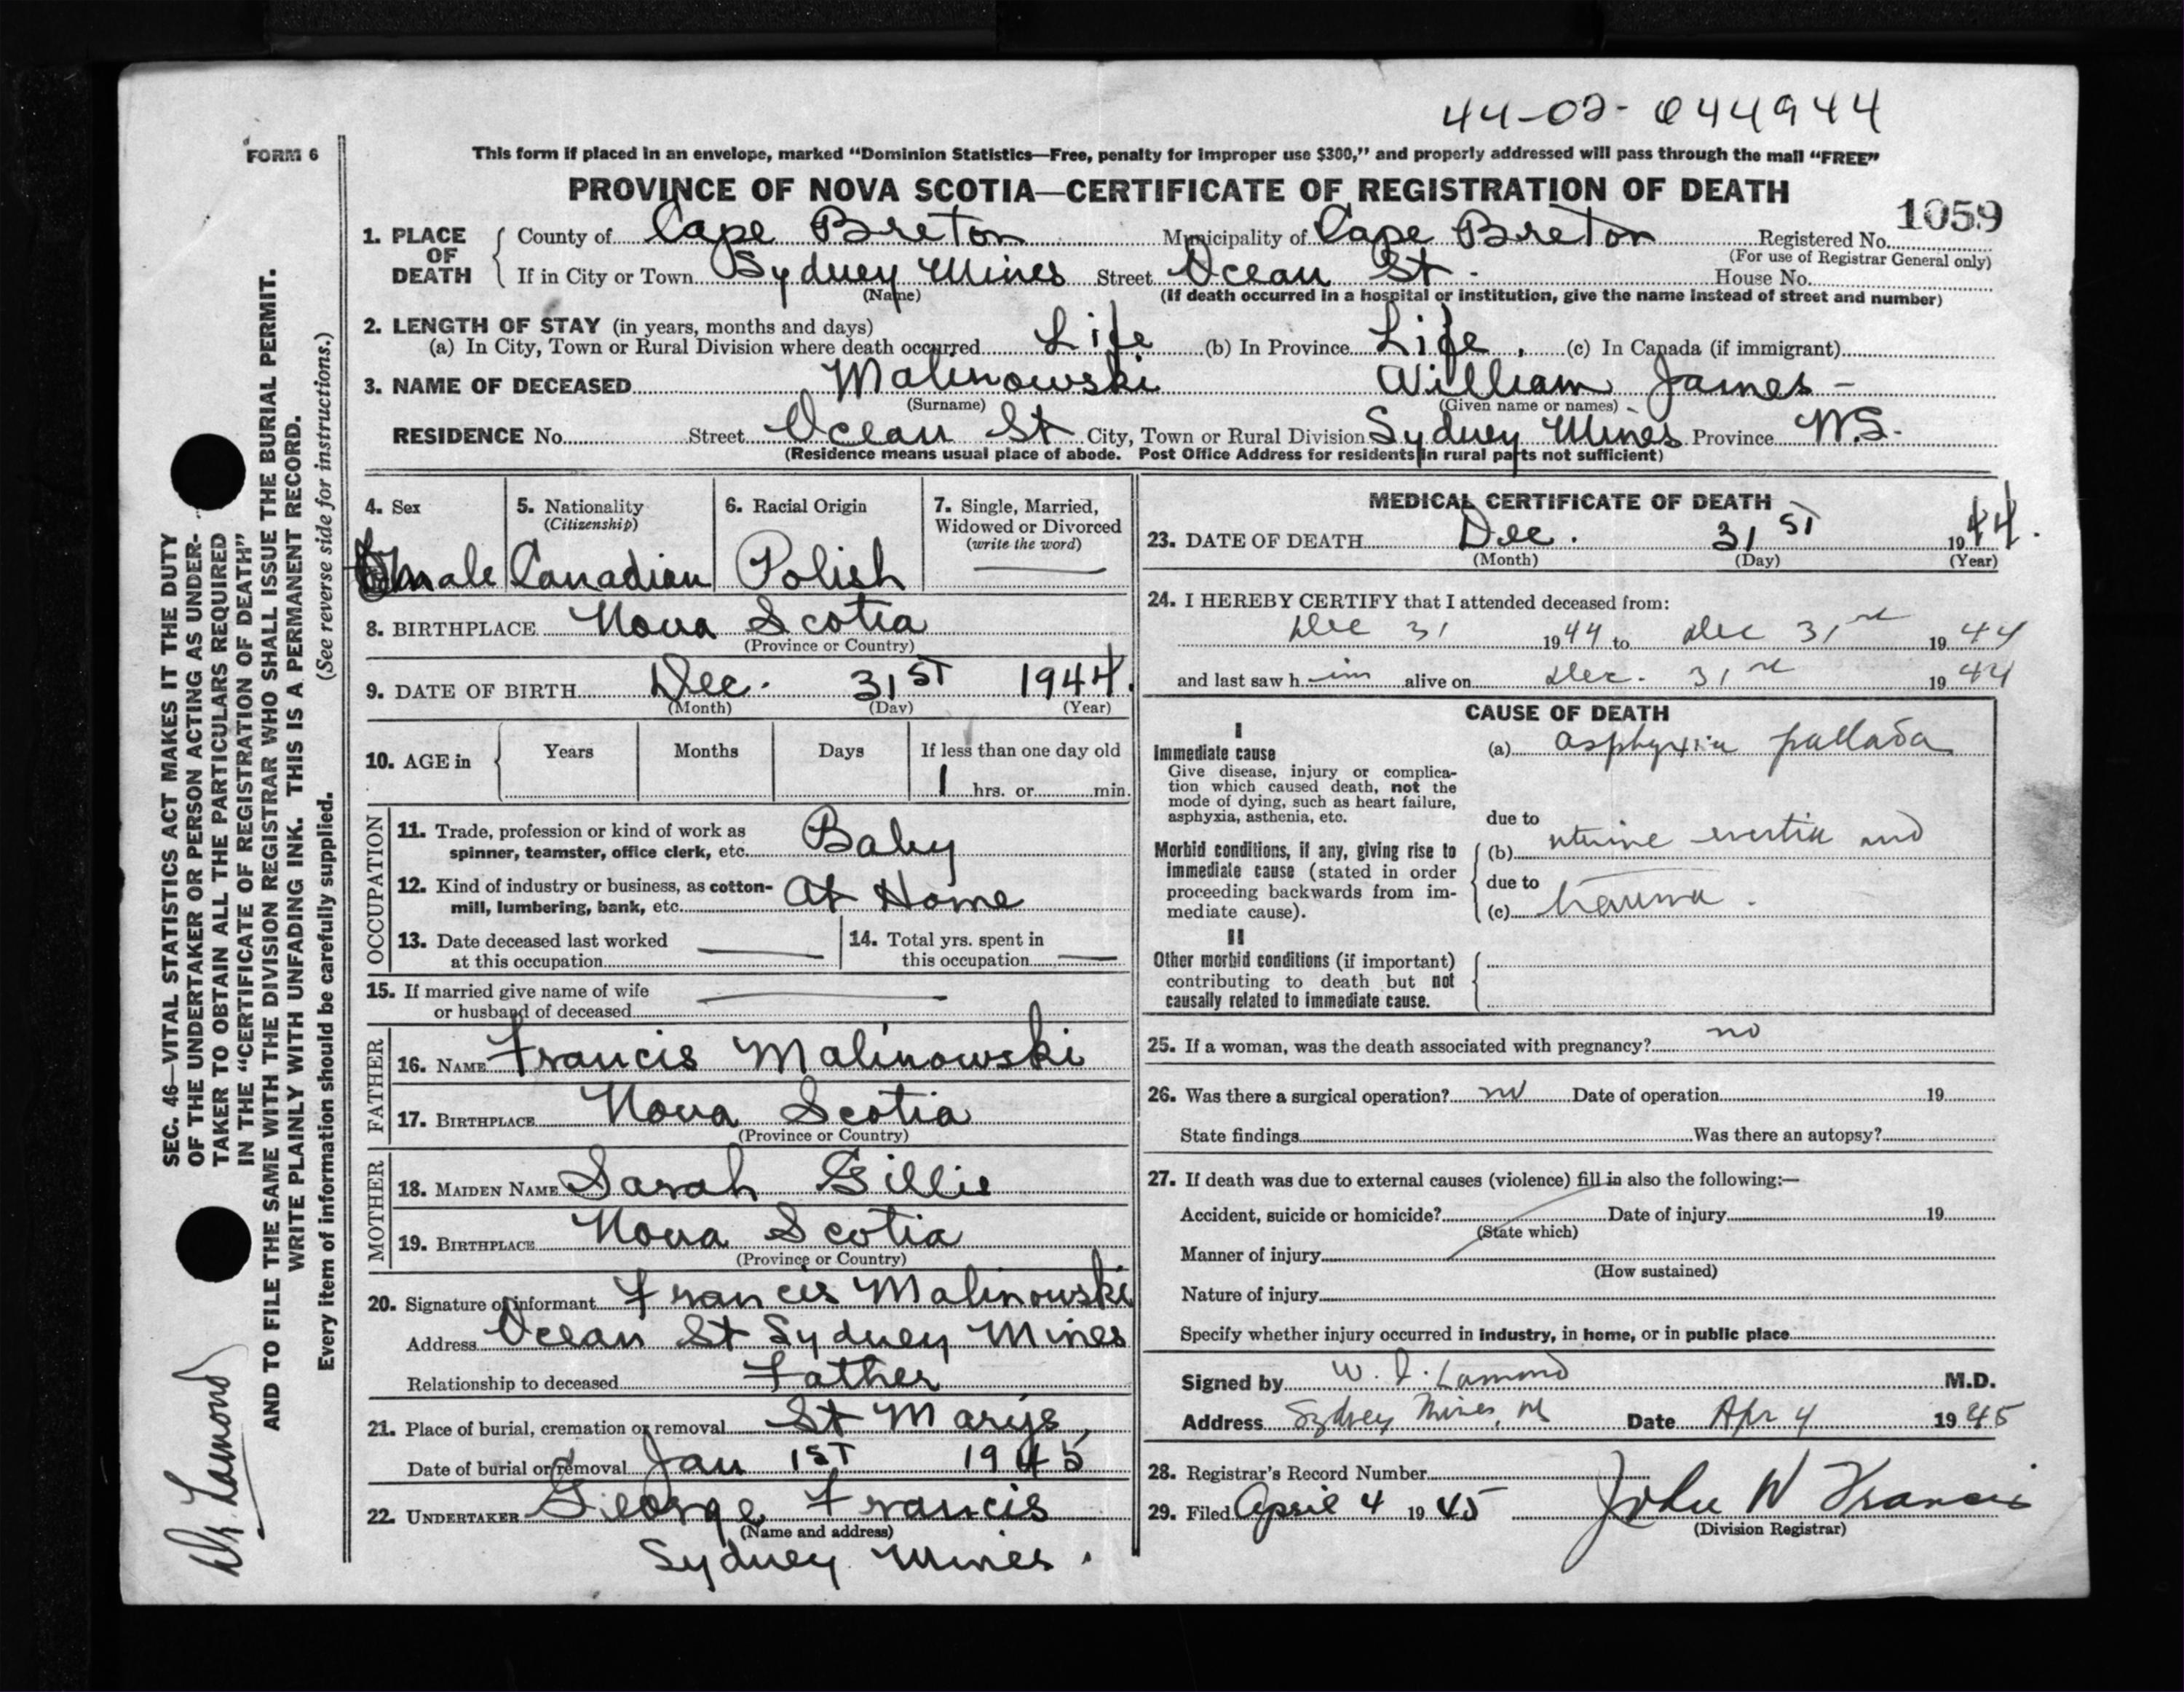 44-02-044944
FORM 6
This form if placed in an envelope, marked "Dominion Statistics—Free, penalty for improper use $300," and properly addressed will pass through the mail "FREE"
PROVINCE OF NOVA SCOTIA—CERTIFICATE OF REGISTRATION OF DEATH
1059
1. PLACE OF DEATH County of Cape Breton Municipality of Cape Breton Registered No.
(For use of Registrar General only)
If in City or Town Sydney Mines Street Ocean St. House No.
(Name) (If death occurred in a hospital or institution, give the name instead of street and number)
2. LENGTH OF STAY (in years, months and days)
(a) In City, Town or Rural Division where death occurred Life (b) In Province Life. (c) In Canada (if immigrant)
3. NAME OF DECEASED Malinowski William James -
(Surname) (Given name or names)
RESIDENCE No. Street Ocean St City, Town or Rural Division Sydney Mines Province N.S.
(Residence means usual place of abode. Post Office Address for residents in rural parts not sufficient)
4. Sex 5. Nationality (Citizenship) 6. Racial Origin 7. Single, Married, Widowed or Divorced (write the word)
male Canadian Polish
8. BIRTHPLACE Nova Scotia
(Province or Country)
9. DATE OF BIRTH Dec. 31ST 1944.
(Month) (Day) (Year)
10. AGE in Years Months Days If less than one day old
1 hrs. or min.
OCCUPATION
11. Trade, profession or kind of work as
spinner, teamster, office clerk, etc. Baby
12. Kind of industry or business, as cotton-
mill, lumbering, bank, etc. At Home
13. Date deceased last worked
at this occupation
14. Total yrs. spent in
this occupation
15. If married give name of wife
or husband of deceased
FATHER
16. NAME Francis Malinowski
17. BIRTHPLACE Nova Scotia
(Province or Country)
MOTHER
18. MAIDEN NAME Sarah Gillis
19. BIRTHPLACE Nova Scotia
(Province or Country)
20. Signature of informant Francis Malinowski
Address Ocean St Sydney Mines
Relationship to deceased Father
21. Place of burial, cremation or removal St Marys,
Date of burial or removal Jan 1ST 1945
22. UNDERTAKER George Francis
(Name and address)
Sydney Mines.
MEDICAL CERTIFICATE OF DEATH
23. DATE OF DEATH Dec. 31ST 1944.
(Month) (Day) (Year)
24. I HEREBY CERTIFY that I attended deceased from:
Dec 31 1944 to Dec 31st 1944
and last saw him alive on Dec. 31st 1944
CAUSE OF DEATH
I
Immediate cause
Give disease, injury or complica-
tion which caused death, not the
mode of dying, such as heart failure,
asphyxia, asthenia, etc.
(a) asphyxia pallada
due to
Morbid conditions, if any, giving rise to
immediate cause (stated in order
proceeding backwards from im-
mediate cause).
(b) uterine inertia and
due to
(c) trauma.
II
Other morbid conditions (if important)
contributing to death but not
causally related to immediate cause.
25. If a woman, was the death associated with pregnancy? no
26. Was there a surgical operation? no Date of operation 19
State findings Was there an autopsy?
27. If death was due to external causes (violence) fill in also the following:—
Accident, suicide or homicide? Date of injury 19
(State which)
Manner of injury
(How sustained)
Nature of injury
Specify whether injury occurred in industry, in home, or in public place
Signed by W. I. Lamond M.D.
Address Sydney Mines, NS Date Apr 4 1945
28. Registrar's Record Number
29. Filed April 4 1945 John W Francis
(Division Registrar)
SEC. 46—VITAL STATISTICS ACT MAKES IT THE DUTY
OF THE UNDERTAKER OR PERSON ACTING AS UNDER-
TAKER TO OBTAIN ALL THE PARTICULARS REQUIRED
IN THE "CERTIFICATE OF REGISTRATION OF DEATH"
AND TO FILE THE SAME WITH THE DIVISION REGISTRAR WHO SHALL ISSUE THE BURIAL PERMIT.
WRITE PLAINLY WITH UNFADING INK. THIS IS A PERMANENT RECORD.
Every item of information should be carefully supplied. (See reverse side for instructions.)
Dr. Lamond